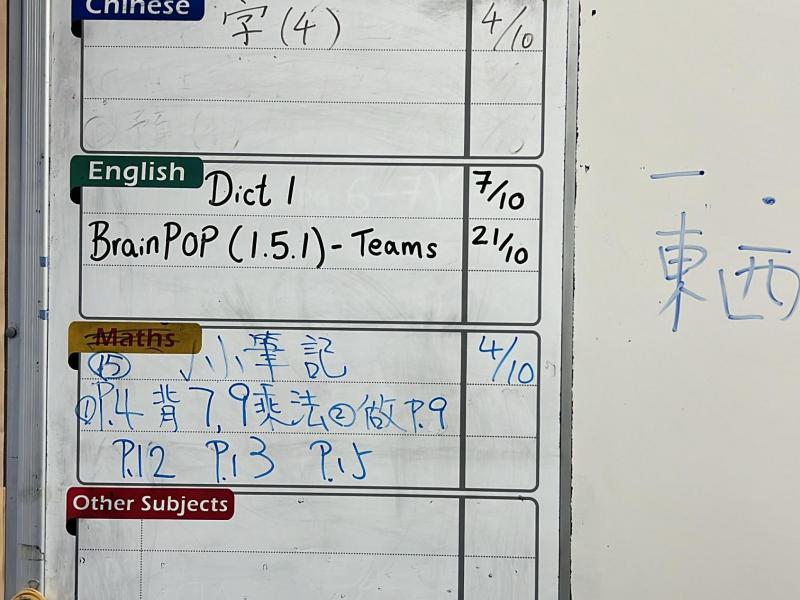 Chinese
字(4) 4/10
English
Dict 1 7/10
BrainPOP (1.5.1) - Teams 21/10
Maths
⑮ 小筆記 4/10
①P.4 背7,9乘法②做P.9
P.12 P.13 P.15
Other Subjects
一
東西